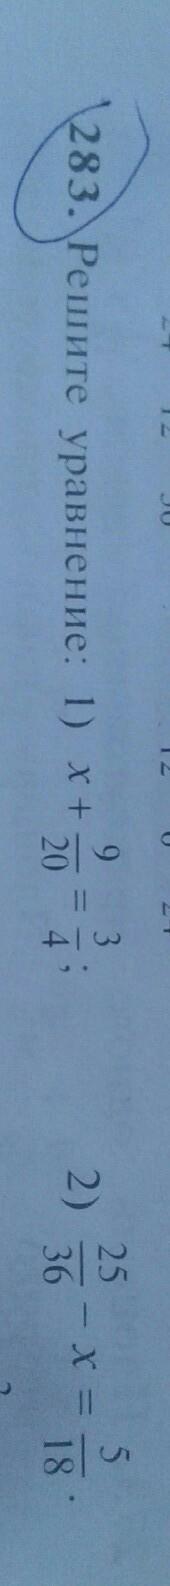 283. Решите уравнение: 1) x + 9/20 = 3/4; 2) 25/36 − x = 5/18.